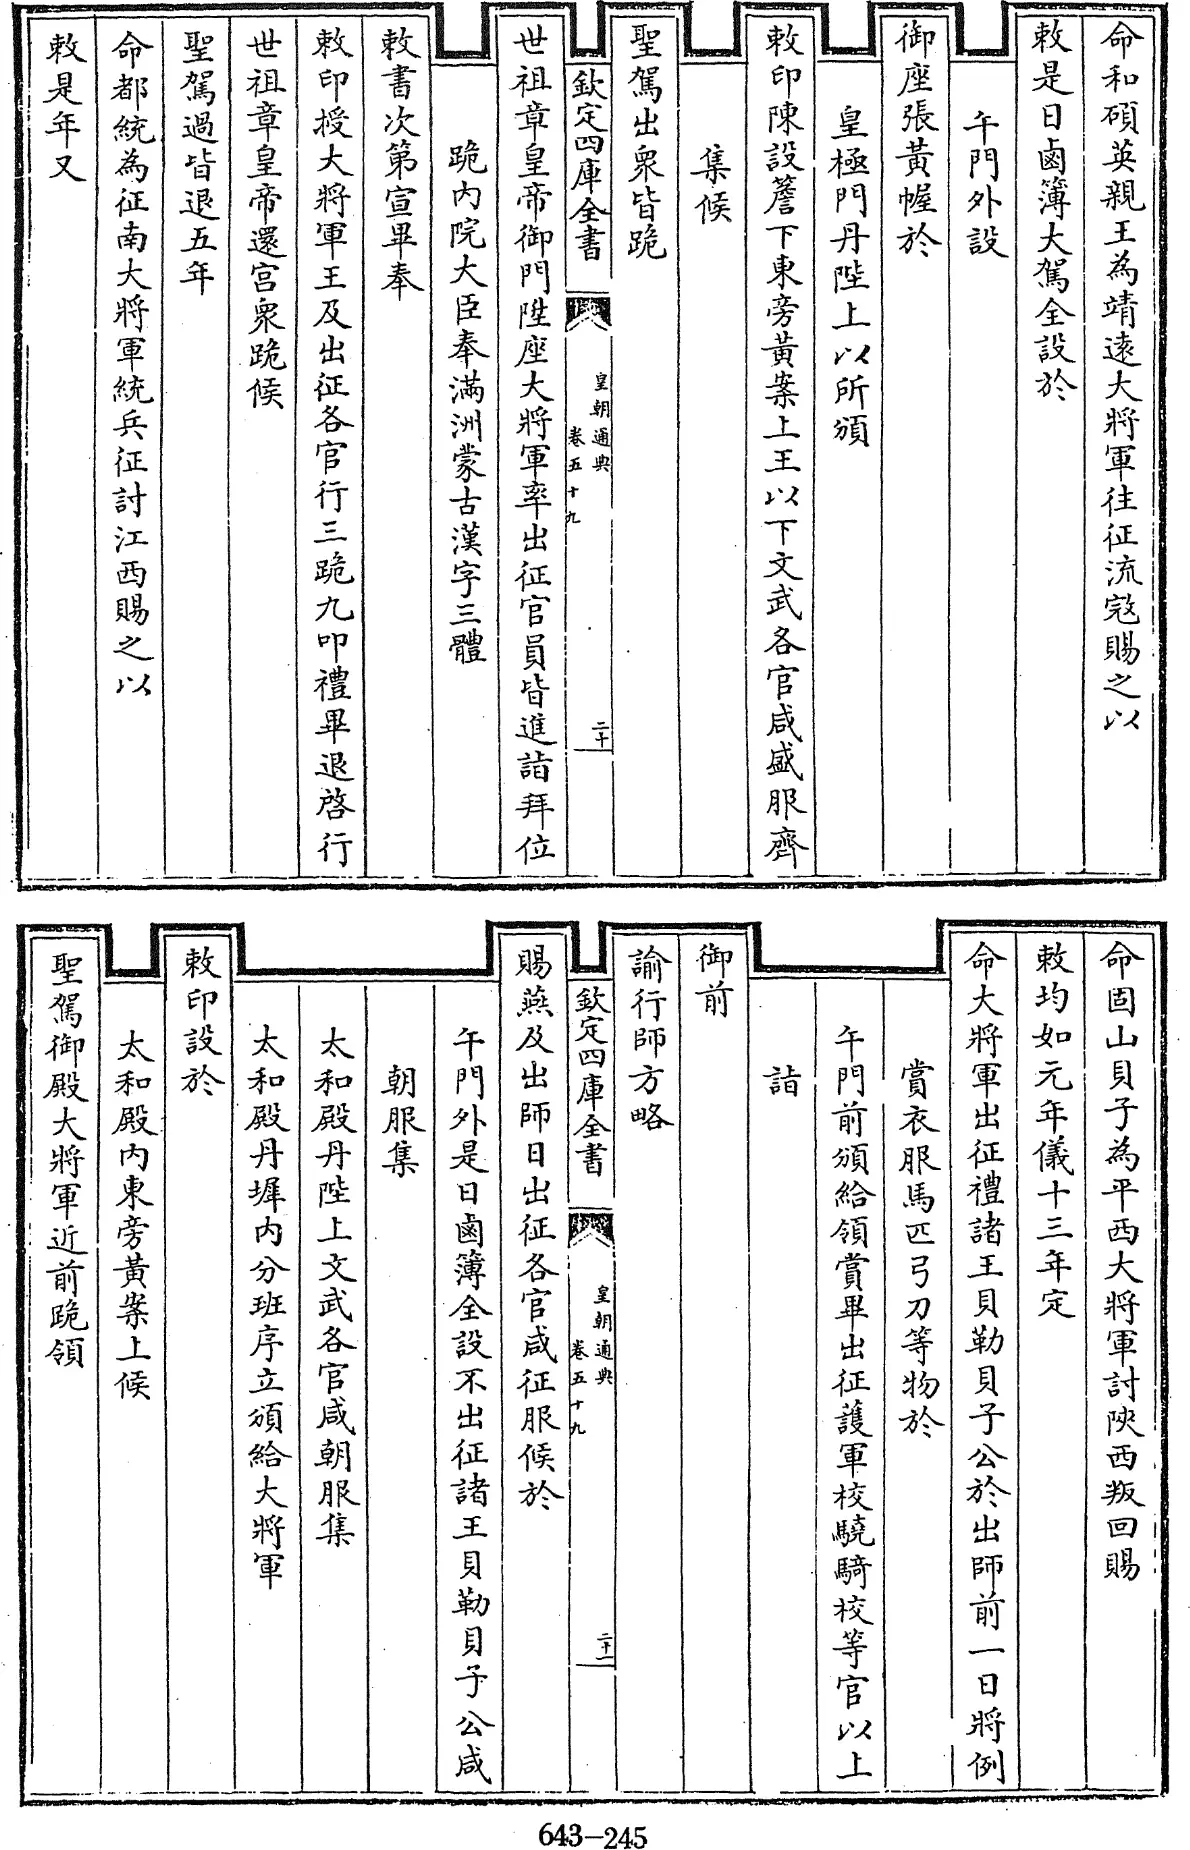 命和碩英親王為靖遠大將軍往征流宼賜之以
敕是日鹵簿大駕全設於
午門外設
御座張黃幄於
皇極門丹陛上以所頒
敕印陳設簷下東旁黃案上王以下文武各官咸盛服齊
集候
聖駕出衆皆跪
欽定四庫全書
皇朝通典
卷五十九
二十
世祖章皇帝御門陞座大將軍率出征官員皆進詣拜位
跪内院大臣奉滿洲蒙古漢字三體
敕書次第宣畢奉
敕印授大將軍王及出征各官行三跪九叩禮畢退啓行
世祖章皇帝還宫衆跪候
聖駕過皆退五年
命都統為征南大將軍統兵征討江西賜之以
敕是年又
命固山貝子為平西大將軍討陜西叛回賜
敕均如元年儀十三年定
命大將軍出征禮諸王貝勒貝子公於出師前一日將例
賞衣服馬匹弓刀等物於
午門前頒給領賞畢出征護軍校驍騎校等官以上
詣
御前
諭行師方略
欽定四庫全書
皇朝通典
卷五十九
二十一
賜燕及出師日出征各官咸征服候於
午門外是日鹵簿全設不出征諸王貝勒貝子公咸
朝服集
太和殿丹陛上文武各官咸朝服集
太和殿丹墀内分班序立頒給大將軍
敕印設於
太和殿内東旁黃案上候
聖駕御殿大將軍近前跪領
643-245